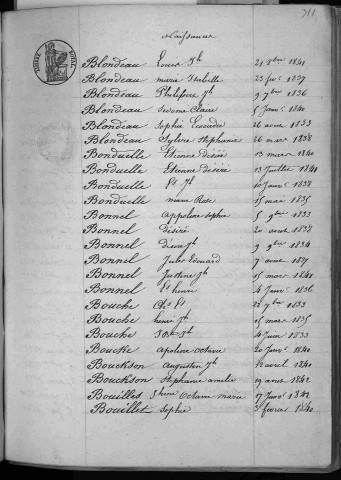 311
Naissances
TIMBRE ROYAL
Blondeau Louise Jh 21 8bre 1841
Blondeau marie Isabelle 23 fév. 1837
Blondeau Philippe Jh 9 7bre 1836
Blondeau Claire 5 Janv. 1840
Blondeau Sophie 26 aout 1833
Blondeau Sylvie Stéphanie 26 mars 1838
Bonduelle Etienne désiré 13 mars 1840
Bonduelle Etienne désiré 13 Juillet 1841
Bonduelle Ls Jh 10 Janv. 1838
Bonduelle marie Rose 15 mai 1835
Bonnel Appoline Sophie 5 9bre 1833
Bonnel désiré 20 aout 1838
Bonnel désiré Jh 9 9bre 1834
Bonnel Jules Edouard 7 aout
Bonnel Justine Jh 15 mars 1841
Bonnel Ls henri 4 Janv. 1836
Bouche Chs Ls 22 7bre 1833
Bouche henri Jh 15 mars 1835
Bouche Jh 4 Juin 1833
Boucke Apoline Octavie 20 Janv. 1840
Bouckson Augustin Jh 12 avril 1840
Bouckson Stéphanie amélie 19 aout 1842
Bouilles Octavie marie 17 Janv. 1842
Bouillet Sophie 3 fevrier 1840